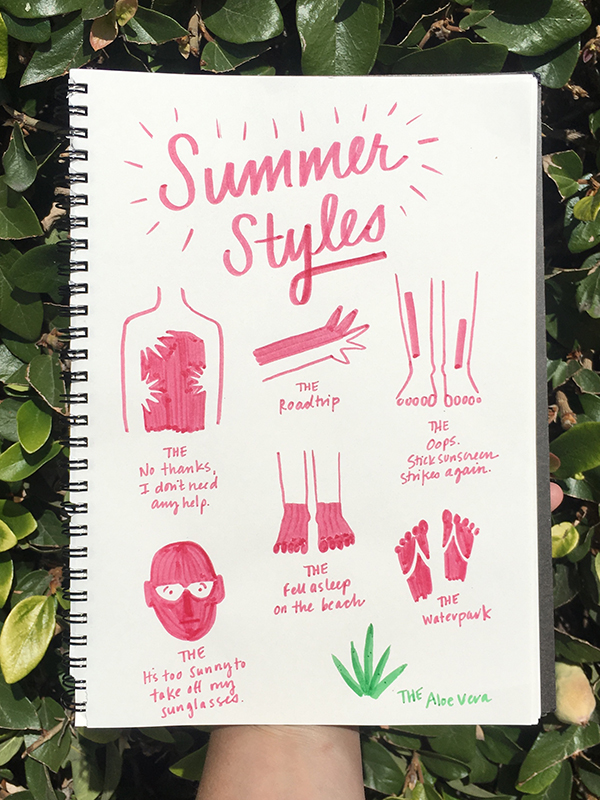 Summer
Styles
THE
No thanks,
I don't need
any help.
THE
Roadtrip
THE
Oops.
Stick sunscreen
strikes again.
THE
It's too sunny to
take off my
sunglasses.
THE
Fell asleep
on the beach
THE
Waterpark
THE Aloe Vera